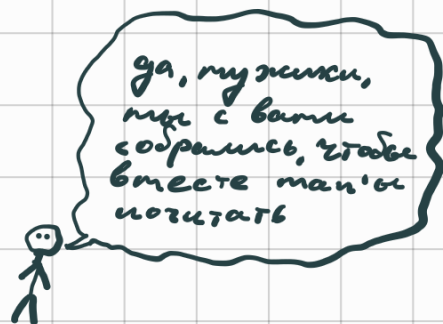 да, мужики,
мы с вами
собрались, чтобы
вместе тап'ы
почитать